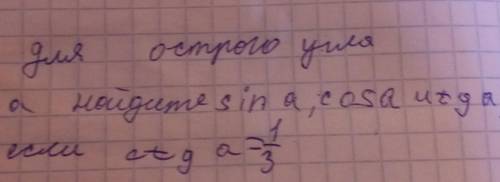 для острого угла
а найдите sin a, cosa и tg a
если ctg a = 1/3